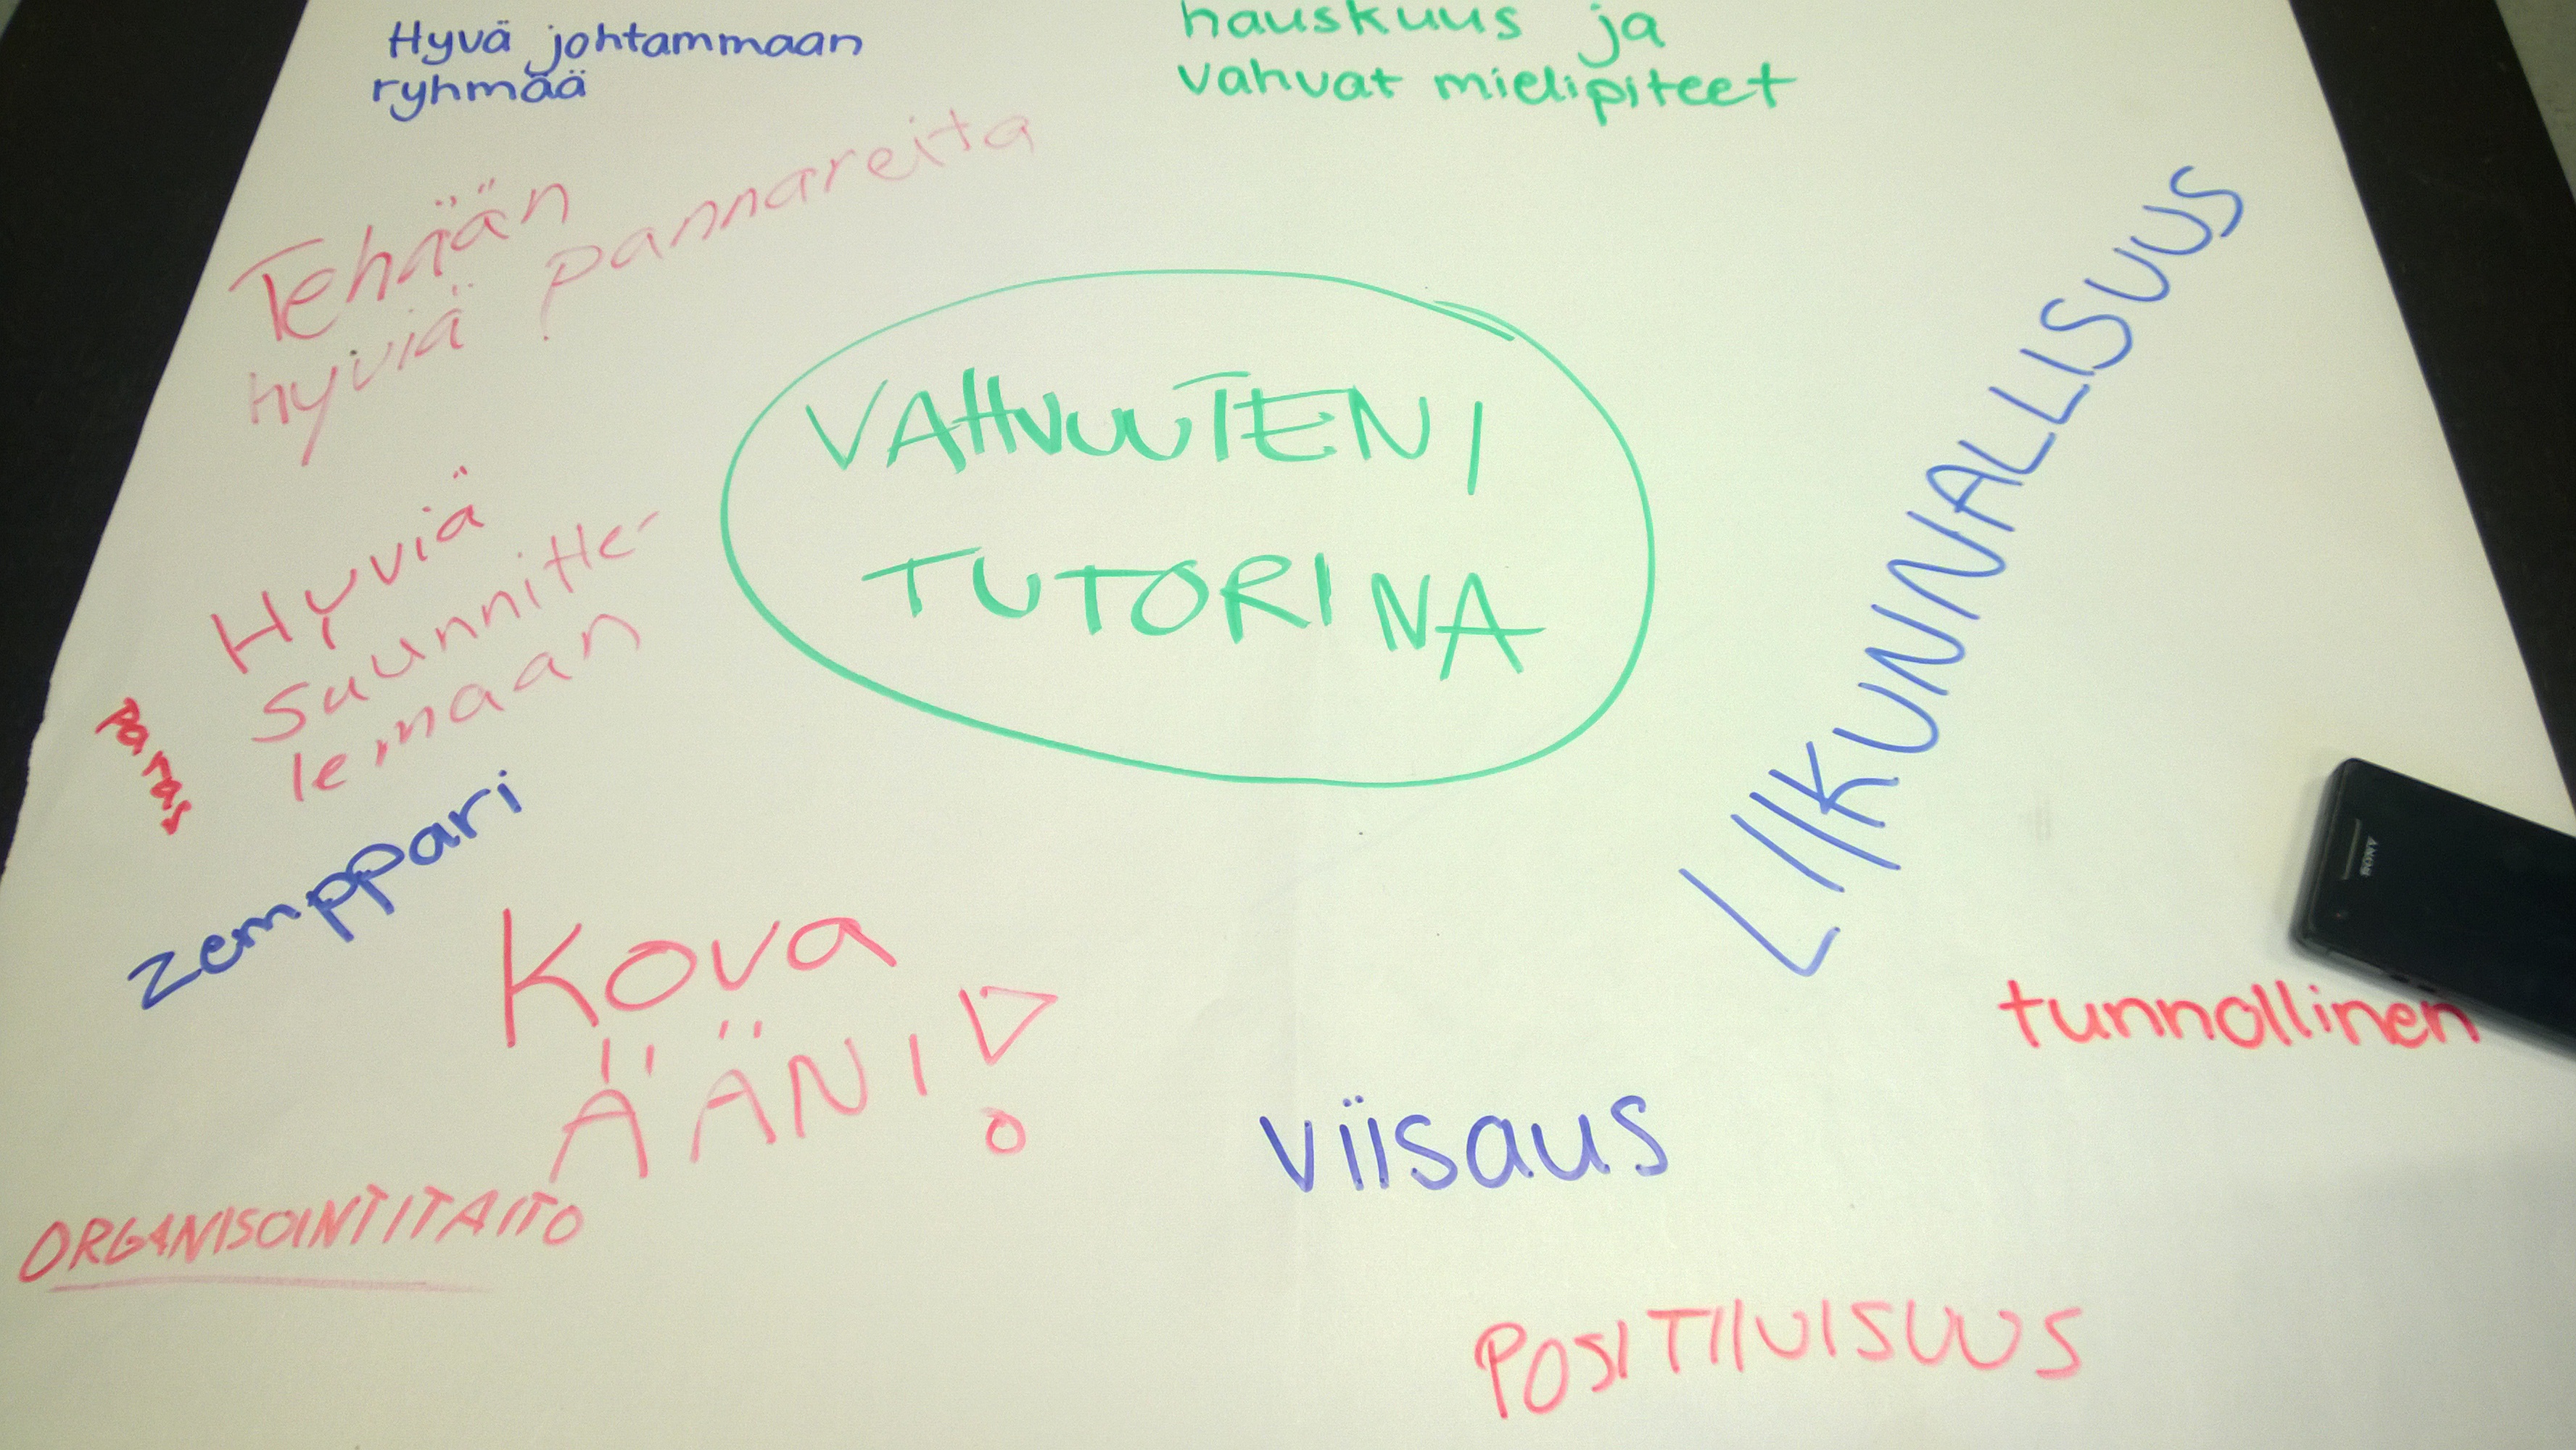 Hyvä johtammaan
ryhmää
hauskuus ja
vahvat mielipiteet
Tehään
hyviä pannareita
VAHVUUTENI
TUTORINA
LIIKUNNALLISUUS
Hyviä
suunnitte-
lemaan
paras
zemppari
Kova
ÄÄNI!
SONY
tunnollinen
viisaus
ORGANISOINTITAITO
POSITIIVISUUS